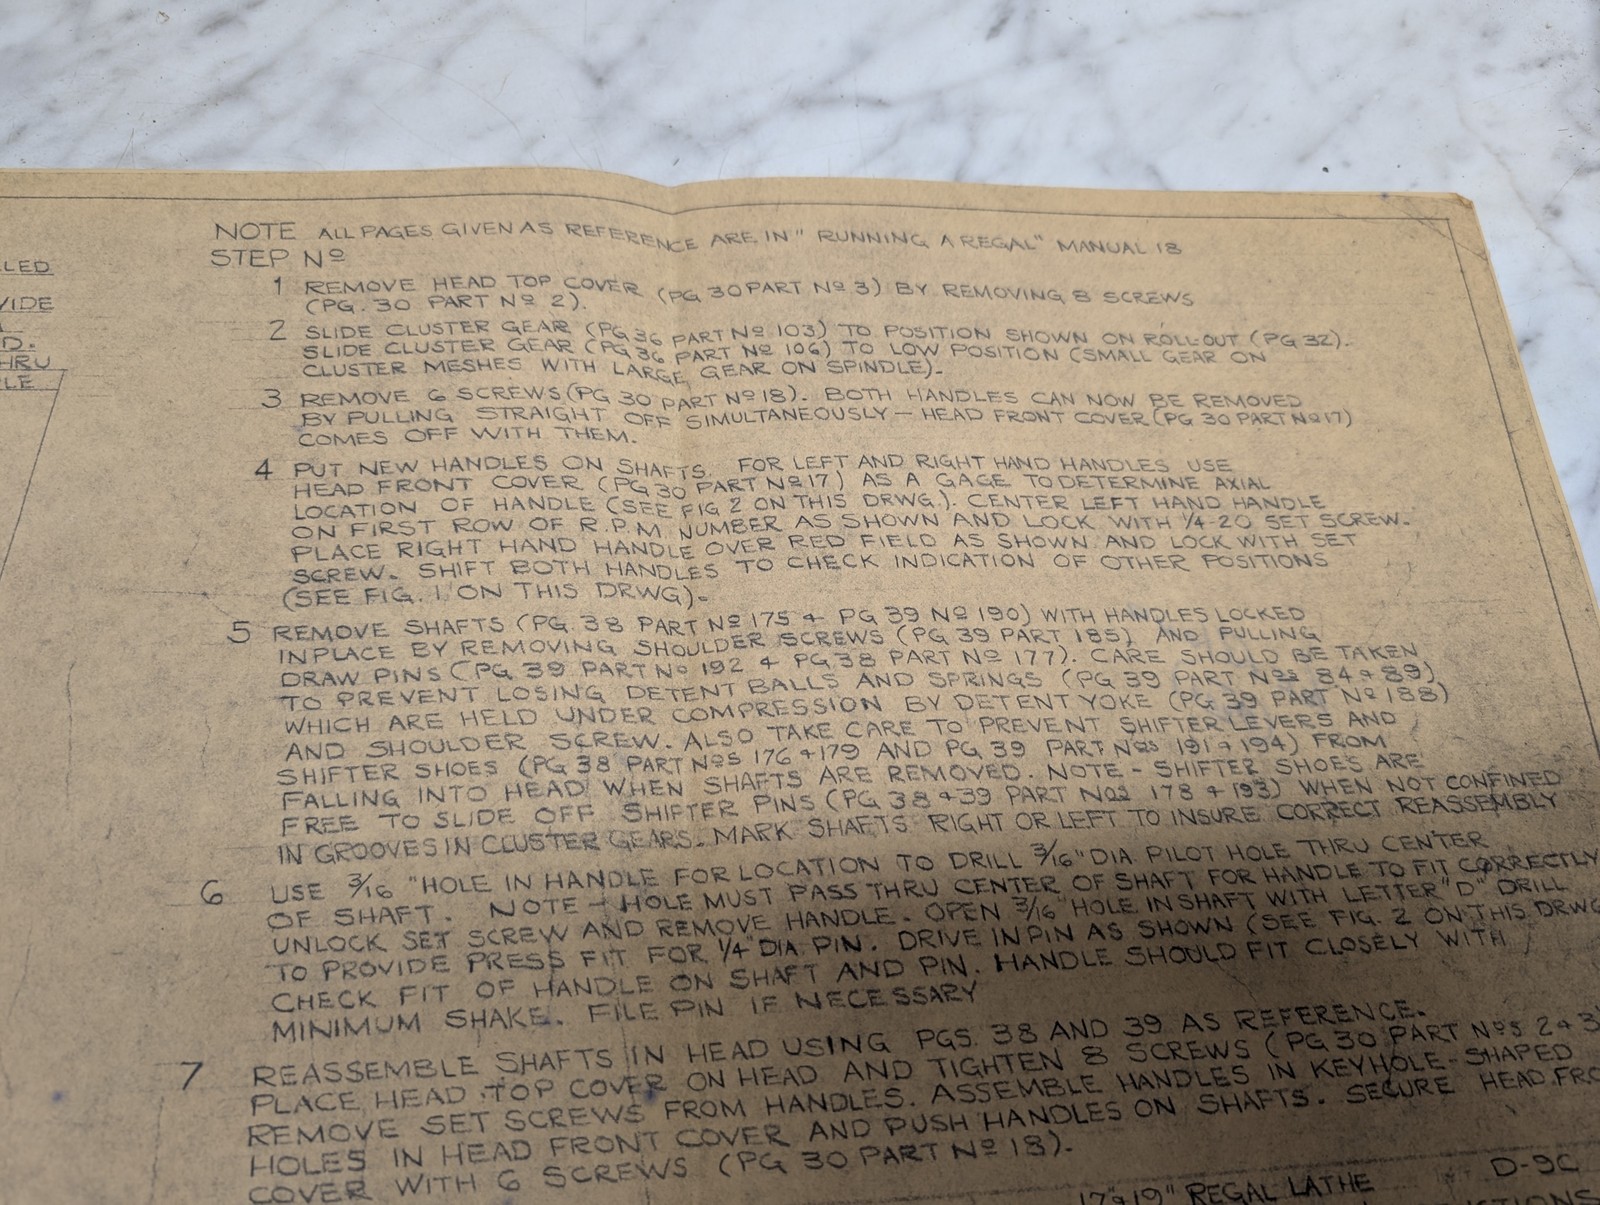 LLED
VIDE
D.
THRU
LE
NOTE ALL PAGES GIVEN AS REFERENCE ARE IN "RUNNING A REGAL" MANUAL 18
STEP Nº
1 REMOVE HEAD TOP COVER (PG 30 PART Nº 3) BY REMOVING 8 SCREWS
(PG. 30 PART Nº 2).
2 SLIDE CLUSTER GEAR (PG 36 PART Nº 103) TO POSITION SHOWN ON ROLL-OUT (PG 32).
SLIDE CLUSTER GEAR (PG 36 PART Nº 106) TO LOW POSITION (SMALL GEAR ON
CLUSTER MESHES WITH LARGE GEAR ON SPINDLE).
3 REMOVE 6 SCREWS (PG 30 PART Nº 18). BOTH HANDLES CAN NOW BE REMOVED
BY PULLING STRAIGHT OFF SIMULTANEOUSLY - HEAD FRONT COVER (PG 30 PART Nº 17)
COMES OFF WITH THEM.
4 PUT NEW HANDLES ON SHAFTS. FOR LEFT AND RIGHT HAND HANDLES USE
HEAD FRONT COVER (PG 30 PART Nº 17) AS A GAGE TO DETERMINE AXIAL
LOCATION OF HANDLE (SEE FIG 2 ON THIS DRWG.). CENTER LEFT HAND HANDLE
ON FIRST ROW OF R.P.M NUMBER AS SHOWN AND LOCK WITH 1/4-20 SET SCREW.
PLACE RIGHT HAND HANDLE OVER RED FIELD AS SHOWN AND LOCK WITH SET
SCREW. SHIFT BOTH HANDLES TO CHECK INDICATION OF OTHER POSITIONS
(SEE FIG. 1 ON THIS DRWG).
5 REMOVE SHAFTS (PG. 38 PART Nº 175 & PG 39 Nº 190) WITH HANDLES LOCKED
IN PLACE BY REMOVING SHOULDER SCREWS (PG 39 PART 185) AND PULLING
DRAW PINS (PG 39 PART Nº 192 & PG 38 PART Nº 177). CARE SHOULD BE TAKEN
TO PREVENT LOSING DETENT BALLS AND SPRINGS (PG 39 PART Nºs 84 & 89)
WHICH ARE HELD UNDER COMPRESSION BY DETENT YOKE (PG 39 PART Nº 188)
AND SHOULDER SCREW. ALSO TAKE CARE TO PREVENT SHIFTER LEVERS AND
SHIFTER SHOES (PG 38 PART Nºs 176 & 179 AND PG 39 PART Nºs 191 & 194) FROM
FALLING INTO HEAD WHEN SHAFTS ARE REMOVED. NOTE - SHIFTER SHOES ARE
FREE TO SLIDE OFF SHIFTER PINS (PG 38 & 39 PART Nºs 178 & 193) WHEN NOT CONFINED
IN GROOVES IN CLUSTER GEARS. MARK SHAFTS RIGHT OR LEFT TO INSURE CORRECT REASSEMBLY
6 USE 3/16 "HOLE IN HANDLE FOR LOCATION TO DRILL 3/16" DIA. PILOT HOLE THRU CENTER
OF SHAFT. NOTE - HOLE MUST PASS THRU CENTER OF SHAFT FOR HANDLE TO FIT CORRECTLY
UNLOCK SET SCREW AND REMOVE HANDLE. OPEN 3/16" HOLE IN SHAFT WITH LETTER "D" DRILL
TO PROVIDE PRESS FIT FOR 1/4" DIA. PIN. DRIVE IN PIN AS SHOWN (SEE FIG. 2 ON THIS DRWG
CHECK FIT OF HANDLE ON SHAFT AND PIN. HANDLE SHOULD FIT CLOSELY WITH
MINIMUM SHAKE. FILE PIN IF NECESSARY
7 REASSEMBLE SHAFTS IN HEAD USING PGS. 38 AND 39 AS REFERENCE.
PLACE HEAD TOP COVER ON HEAD AND TIGHTEN 8 SCREWS (PG 30 PART Nºs 2 & 3
REMOVE SET SCREWS FROM HANDLES. ASSEMBLE HANDLES IN KEYHOLE-SHAPED
HOLES IN HEAD FRONT COVER AND PUSH HANDLES ON SHAFTS. SECURE HEAD FRO
COVER WITH 6 SCREWS (PG 30 PART Nº 18).
17" & 19" REGAL LATHE D-9C